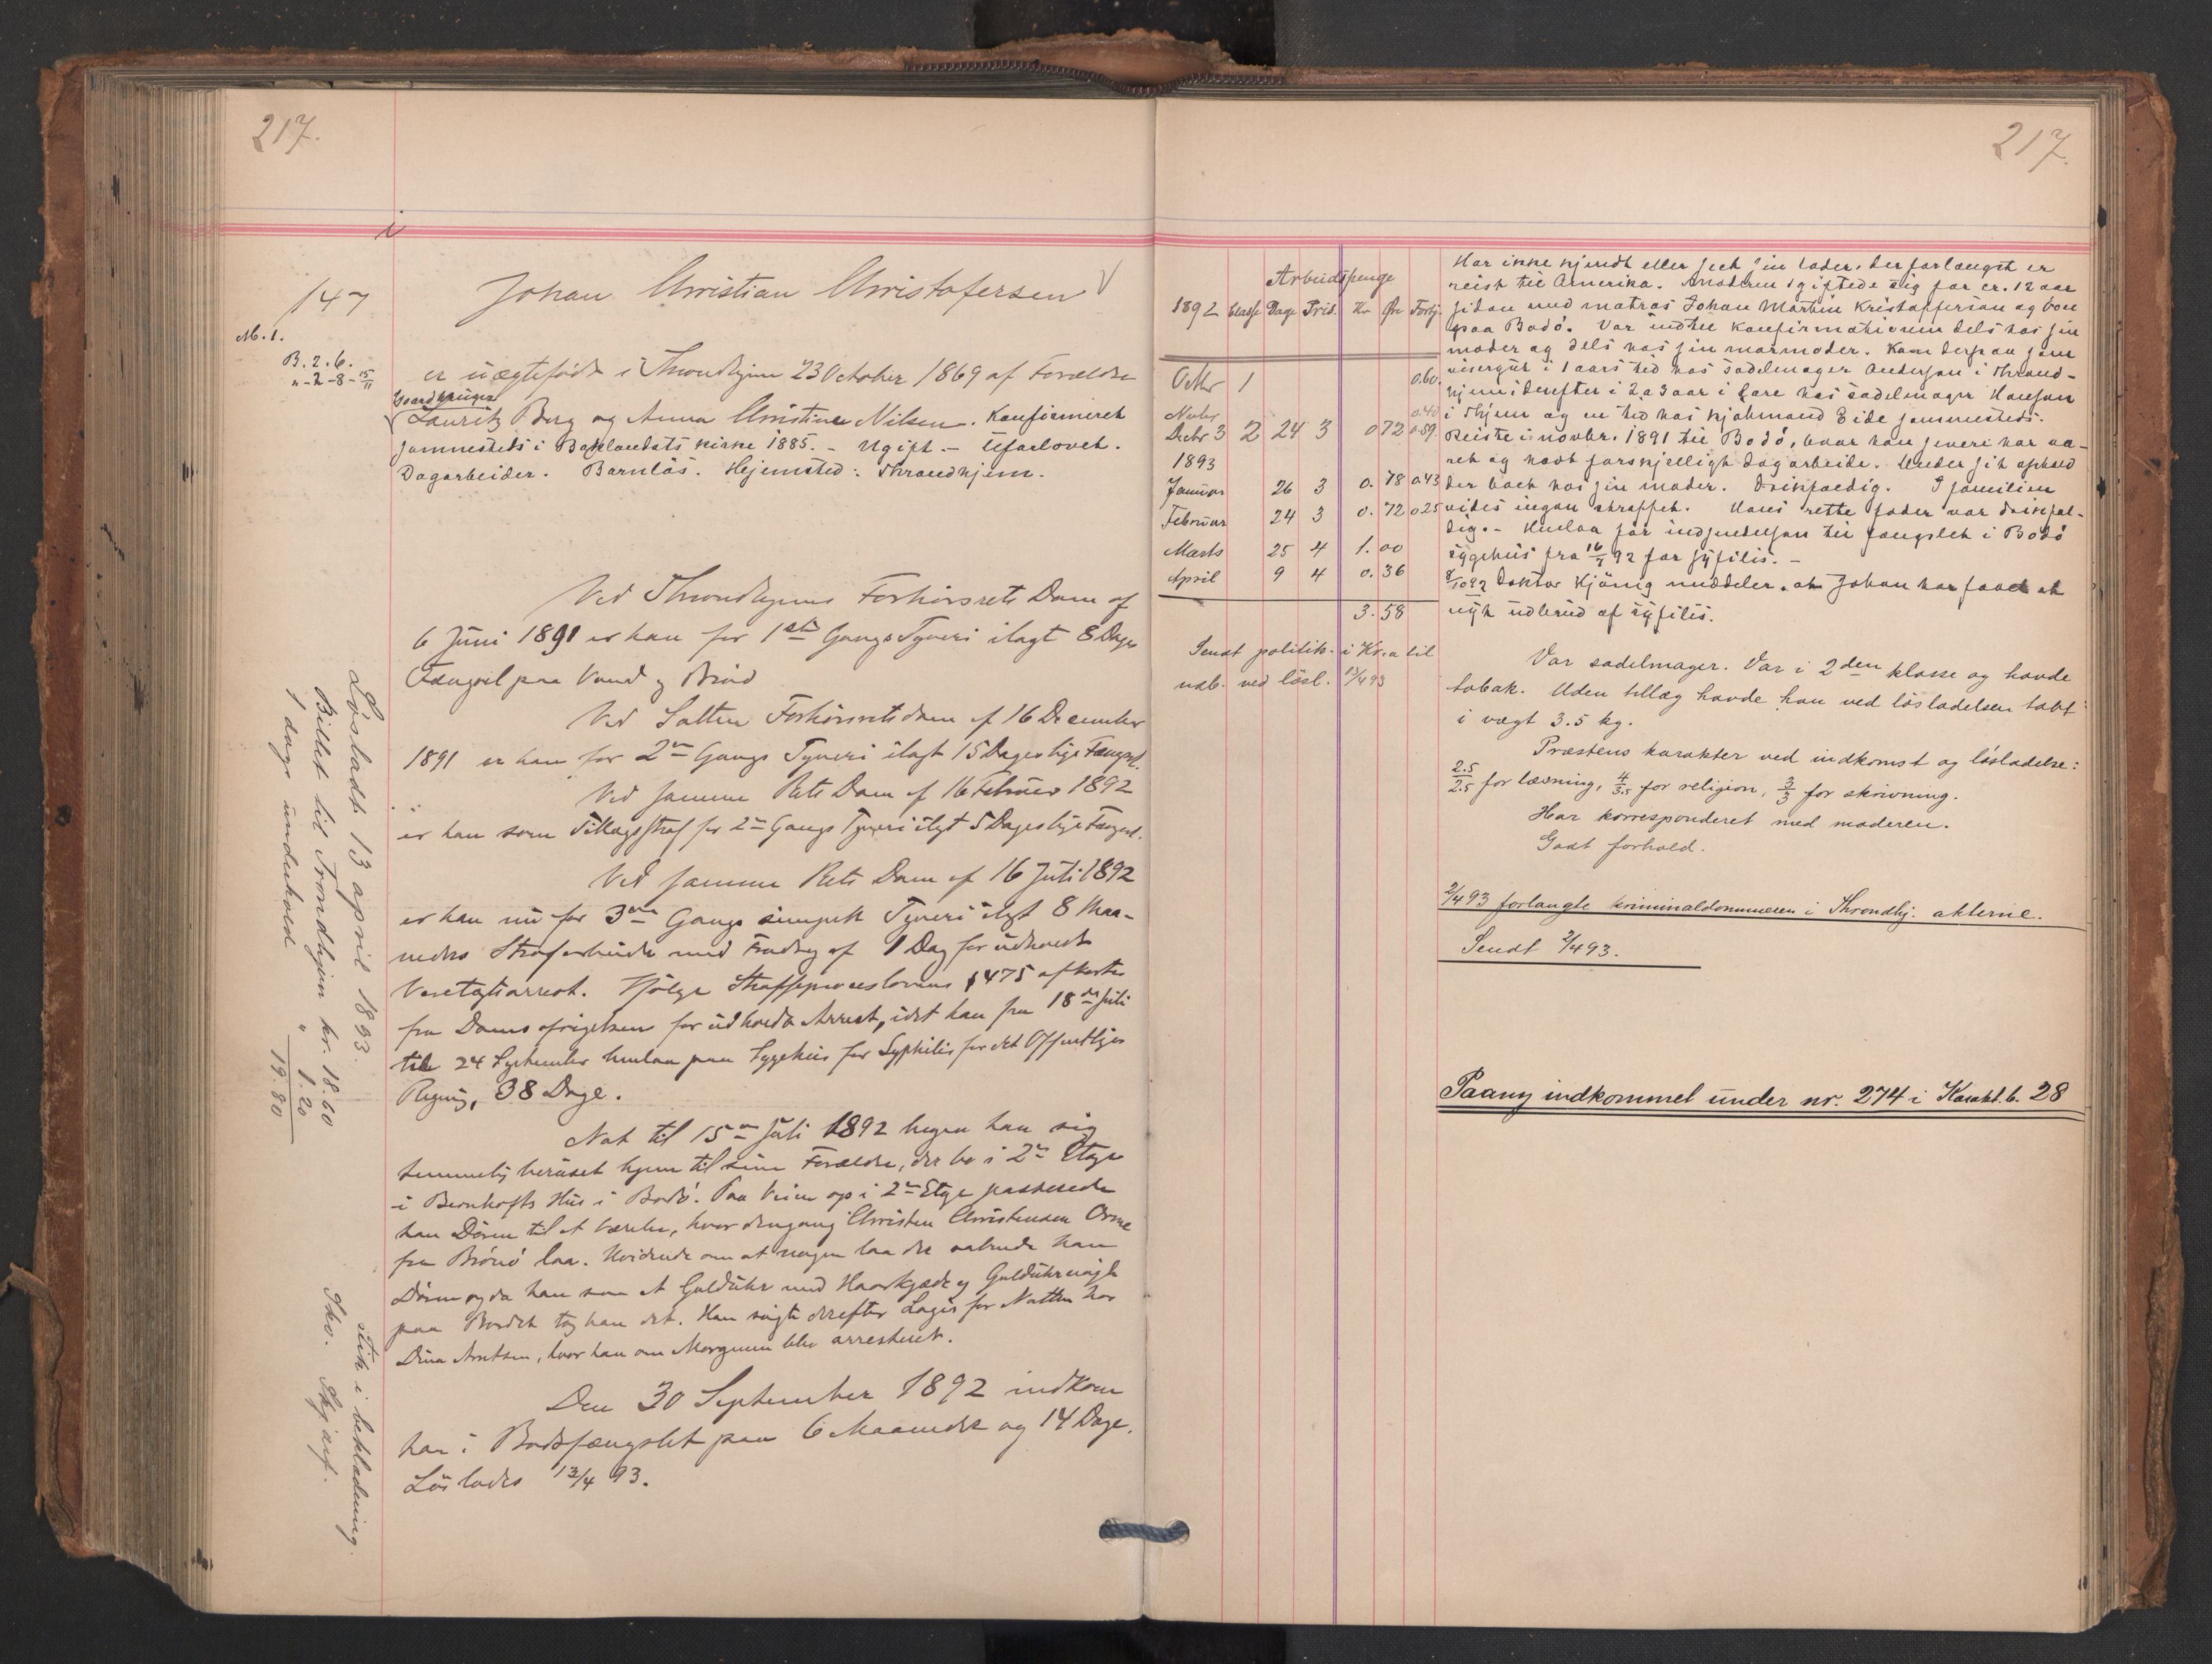 217.
147
M. 1.
B. 2. 6.
"-2-8-15/11
Johan Christian Christofersen
er uægtefödt i Throndhjem 23 October 1869 af Forældre
Gaardbruger
Lauritz Berg og Anna Christine Nilsen. Konfirmeret
sammesteds i Baklandets kirke 1885. - Ugift. - Uforlovet.
Dagarbeider. Barnlös. Hjemsted: Throndhjem.
Ved Throndhjems Forhörsrets Dom af
6 Juni 1891 er han for 1ste Gangs Tyveri ilagt 8 Dages
Fængsel paa Vand og Bröd
Ved Saltens Forhörsrets dom af 16 December
1891 er han for 2den Gangs Tyveri ilagt 15 Dages lige Fængsel.
Ved samme Rets Dom af 16 Februar 1892
er han som Tillægsstraf for 2den Gangs Tyveri ilagt 5 Dages lige Fængsel.
Ved samme Rets Dom af 16 Juli 1892
er han nu for 3die Gangs simpelt Tyveri ilagt 8 Maa-
neders Strafarbeide med Fradrag af 1 Dag for udholdt
Varetægtsarrest. Ifölge Straffeproceslovens § 475 afkortes
fra Doms afsigelsen for udholdt Arrest, idet han fra 18de Juli
til 24 September henlaa paa Sygehus for Syphilis for det Offentliges
Regning, 38 Dage.
Nat til 15de Juli 1892 begav han sig
temmelig beruset hjem til sine Forældre, der bo i 2den Etage
i Bernhofts Hus i Bodö. Paa Veien op i 2den Etage passerede
han Dören til et Værelse, hvor dengang Christen Christensen Orme
fra Brönö laa. Uvidende om at nogen laa der aabnede han
Dören og da han saa et Guldühr med Haarkjæde og Guldührnögle
paa Bordet tog han det. Han sögte derefter Logis for Natten hos
Dina Arntsen, hvor han om Morgenen blev arresteret.
Den 30 September 1892 indkom
han i Bodsfængslet paa 6 Maaneder og 14 Dage.
Löslades 13/4 93.
Lösladt 13 april 1893.
Billet til Trondhjem kr. 18.60
1 dags underhold " 1.20
19.80
Stik i beklædning.
Sko. Skjærf.
217.
Arbeidspenge
1892 Classe Dage Frid. Kr Öre Fortj.
Octbr 1 0.60.
Novbr 0.40
Decbr 3 2 24 3 0 72 0.59.
1893
Januar 26 3 0. 78 043
Februar 24 3 0. 72 025
Marts 25 4 1. 00
April 9 4 0. 36
3. 58
Sendt politik. i Kr.a til
udb. ved lösl. 13/4 93
Har ikke kjendt eller seet sin fader, der forlængst er
reist til Amerika. Moderen giftede sig for cr. 12 aar
siden med matros Johan Martin Kristoffersen og bor
paa Bodö. Var indtil konfirmationen dels hos sin
moder og dels hos sin mormoder. Kom derpaa som
visergut i 1 aars tid hos sadelmager Andersen i Thrond-
hjem; derefter i 2 a 3 aar i lære hos sadelmager Hansen
i Thjem og en tid hos kjöbmand Eide sammesteds.
Reiste i novbr. 1891 til Bodö, hvor han senere har væ-
ret og havt forskjelligt dagarbeide. Under sit ophold
der boet hos sin moder. Drikfældig. I familien
vides ingen straffet. Hans rette fader var drikfæl-
dig. - Henlaa för indsendelsen til fængslet i Bodö
sygehus fra 16/7 92 for syfilis. -
8/10 92 Doktor Kjönig meddeler, at Johan har faaet et
nyt udbrud af syfilis.
Var sadelmager. Var i 2den klasse og havde
tobak. Uden tillæg havde han ved lösladelsen tabt
i vægt 3.5 kg.
Præstens karakter ved indkomst og lösladelse:
2.5/2.5 for læsning, 4/3.5 for religion, 3/3 for skrivning.
Har korresponderet med moderen.
Godt forhold.
2/4 93 forlangte kriminaldommeren i Throndhj. akterne.
Sendt 2/4 93.
Paany indkommet under nr. 274 i Karakt.b. 28